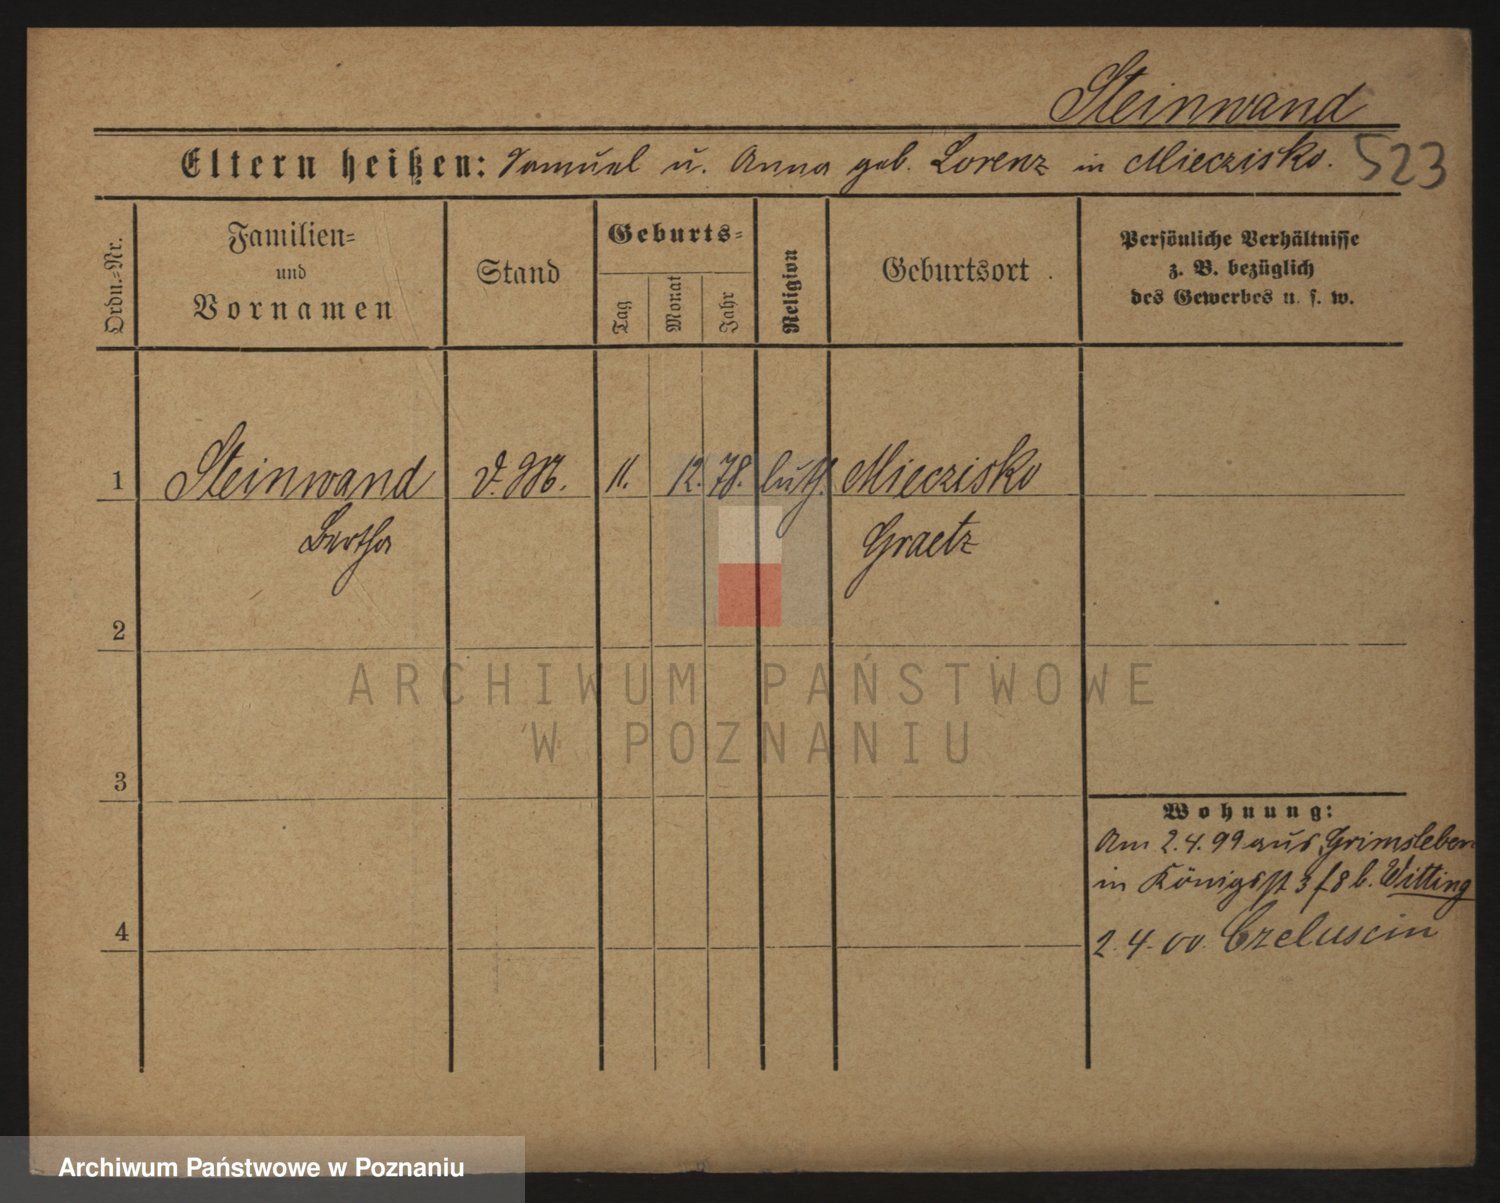 Steinwand
Eltern heißen: Samuel u. Anna geb. Lorenz in Mieczisko. 523
Ordn.-Nr.
Familien-
und
Vornamen
Stand
Geburts-
Tag
Monat
Jahr
Religion
Geburtsort
Persönliche Verhältnisse
z. B. bezüglich
des Gewerbes u. s. w.
1 Steinwand D.M. 11. 12. 78. luth. Mieczisko
Bertha Graetz
2
ARCHIWUM PAŃSTWOWE
W POZNANIU
3
Wohnung:
Am 2.4.99 aus Grimsleben
in Königsst 3 f 8 b. Witting
4
2.4.00. Czeluscin
Archiwum Państwowe w Poznaniu